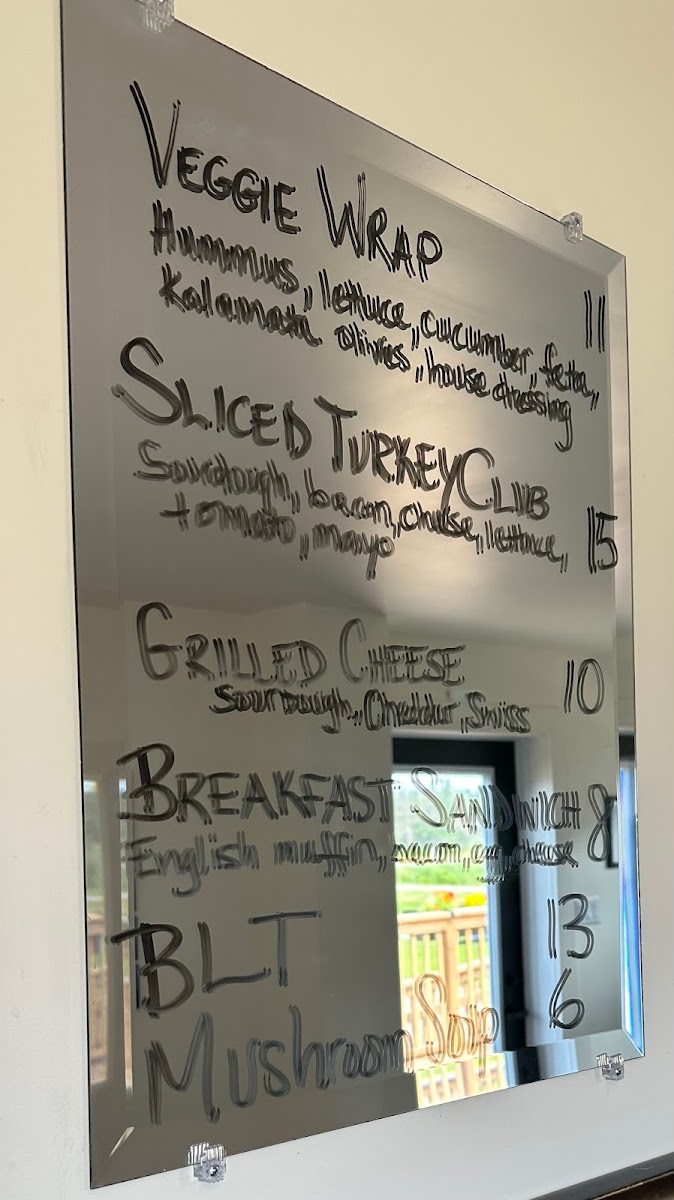 VEGGIE WRAP
Hummus, lettuce, cucumber, feta, 11
Kalamata olives, house dressing
SLICED TURKEY CLUB
Sourdough, bacon, cheese, lettuce, 15
tomato, mayo
GRILLED CHEESE 10
Sourdough, Cheddar, Swiss
BREAKFAST SANDWICH 8
English muffin, bacon, egg, cheese
BLT 13
Mushroom Soup 6